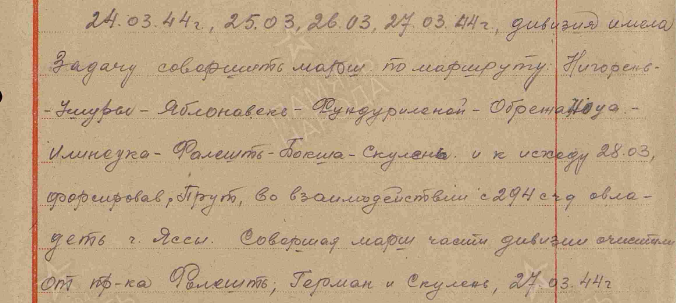 24.03.44г, 25.03, 26.03, 27.03.44г, дивизия имела
Задачу совершить марш по маршруту: Нигорень-
-Умуры - Яблонавене - Фундуриленой - Обрежа Ноуа. -
Илинеука - Фалешть - Бокша - Скулень. и к исходу 28.03,
форсировав, Прут, во взаимодействии с 294 сд овла-
деть г. Яссы. Совершая марш части дивизии очистили
от пр-ка Фалешть, Герман и Скулень, 27.03.44г